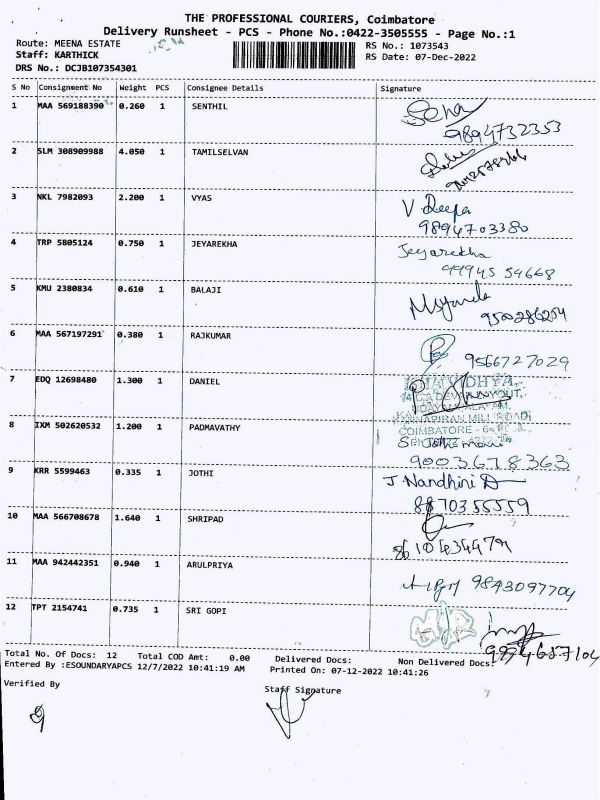 THE PROFESSIONAL COURIERS, Coimbatore
Delivery Runsheet - PCS - Phone No.:0422-3505555 - Page No.:1
Route: MEENA ESTATE
Staff: KARTHICK
DRS No.: DCJB107354301
RS No.: 1073543
RS Date: 07-Dec-2022
S No Consignment No Weight PCS Consignee Details Signature
1 MAA 569188390 0.260 1 SENTHIL
9894732353
2 SLM 308909988 4.050 1 TAMILSELVAN
3 NKL 7982093 2.200 1 VYAS V Deepa
9894703380
4 TRP 5805124 0.750 1 JEYAREKHA Jeyarekha
99945 59668
5 KMU 2380834 0.610 1 BALAJI
9500286254
6 MAA 567197291 0.380 1 RAJKUMAR
9566727029
7 EDQ 12698480 1.300 1 DANIEL
8 IXM 502620532 1.200 1 PADMAVATHY
COIMBATORE
9003678363
9 KRR 5599463 0.335 1 JOTHI J Nandhini
8870355559
10 MAA 566708678 1.640 1 SHRIPAD
11 MAA 942442351 0.940 1 ARULPRIYA
9843097704
12 TPT 2154741 0.735 1 SRI GOPI
9994687104
Total No. Of Docs: 12 Total COD Amt: 0.00 Delivered Docs: Non Delivered Docs:
Entered By :ESOUNDARYAPCS 12/7/2022 10:41:19 AM Printed On: 07-12-2022 10:41:26
Verified By Staff Signature